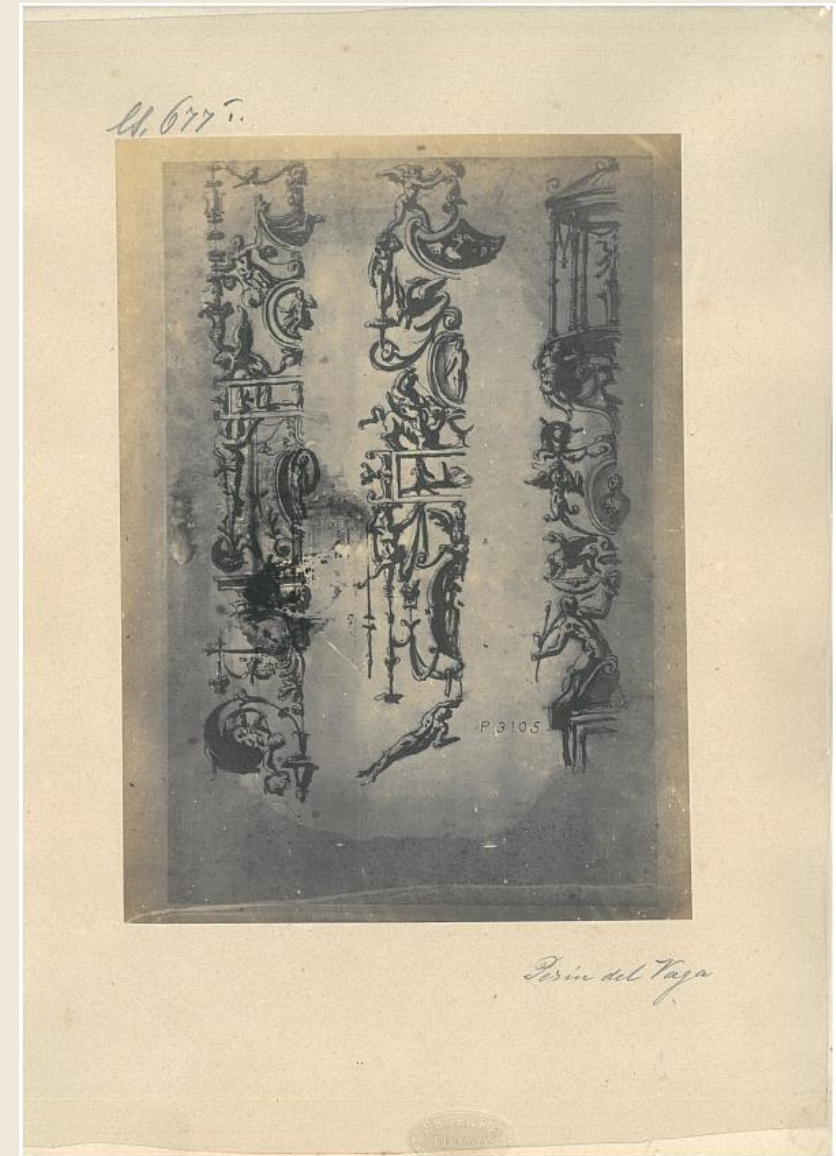 677
P 3105
Perin del Vaga